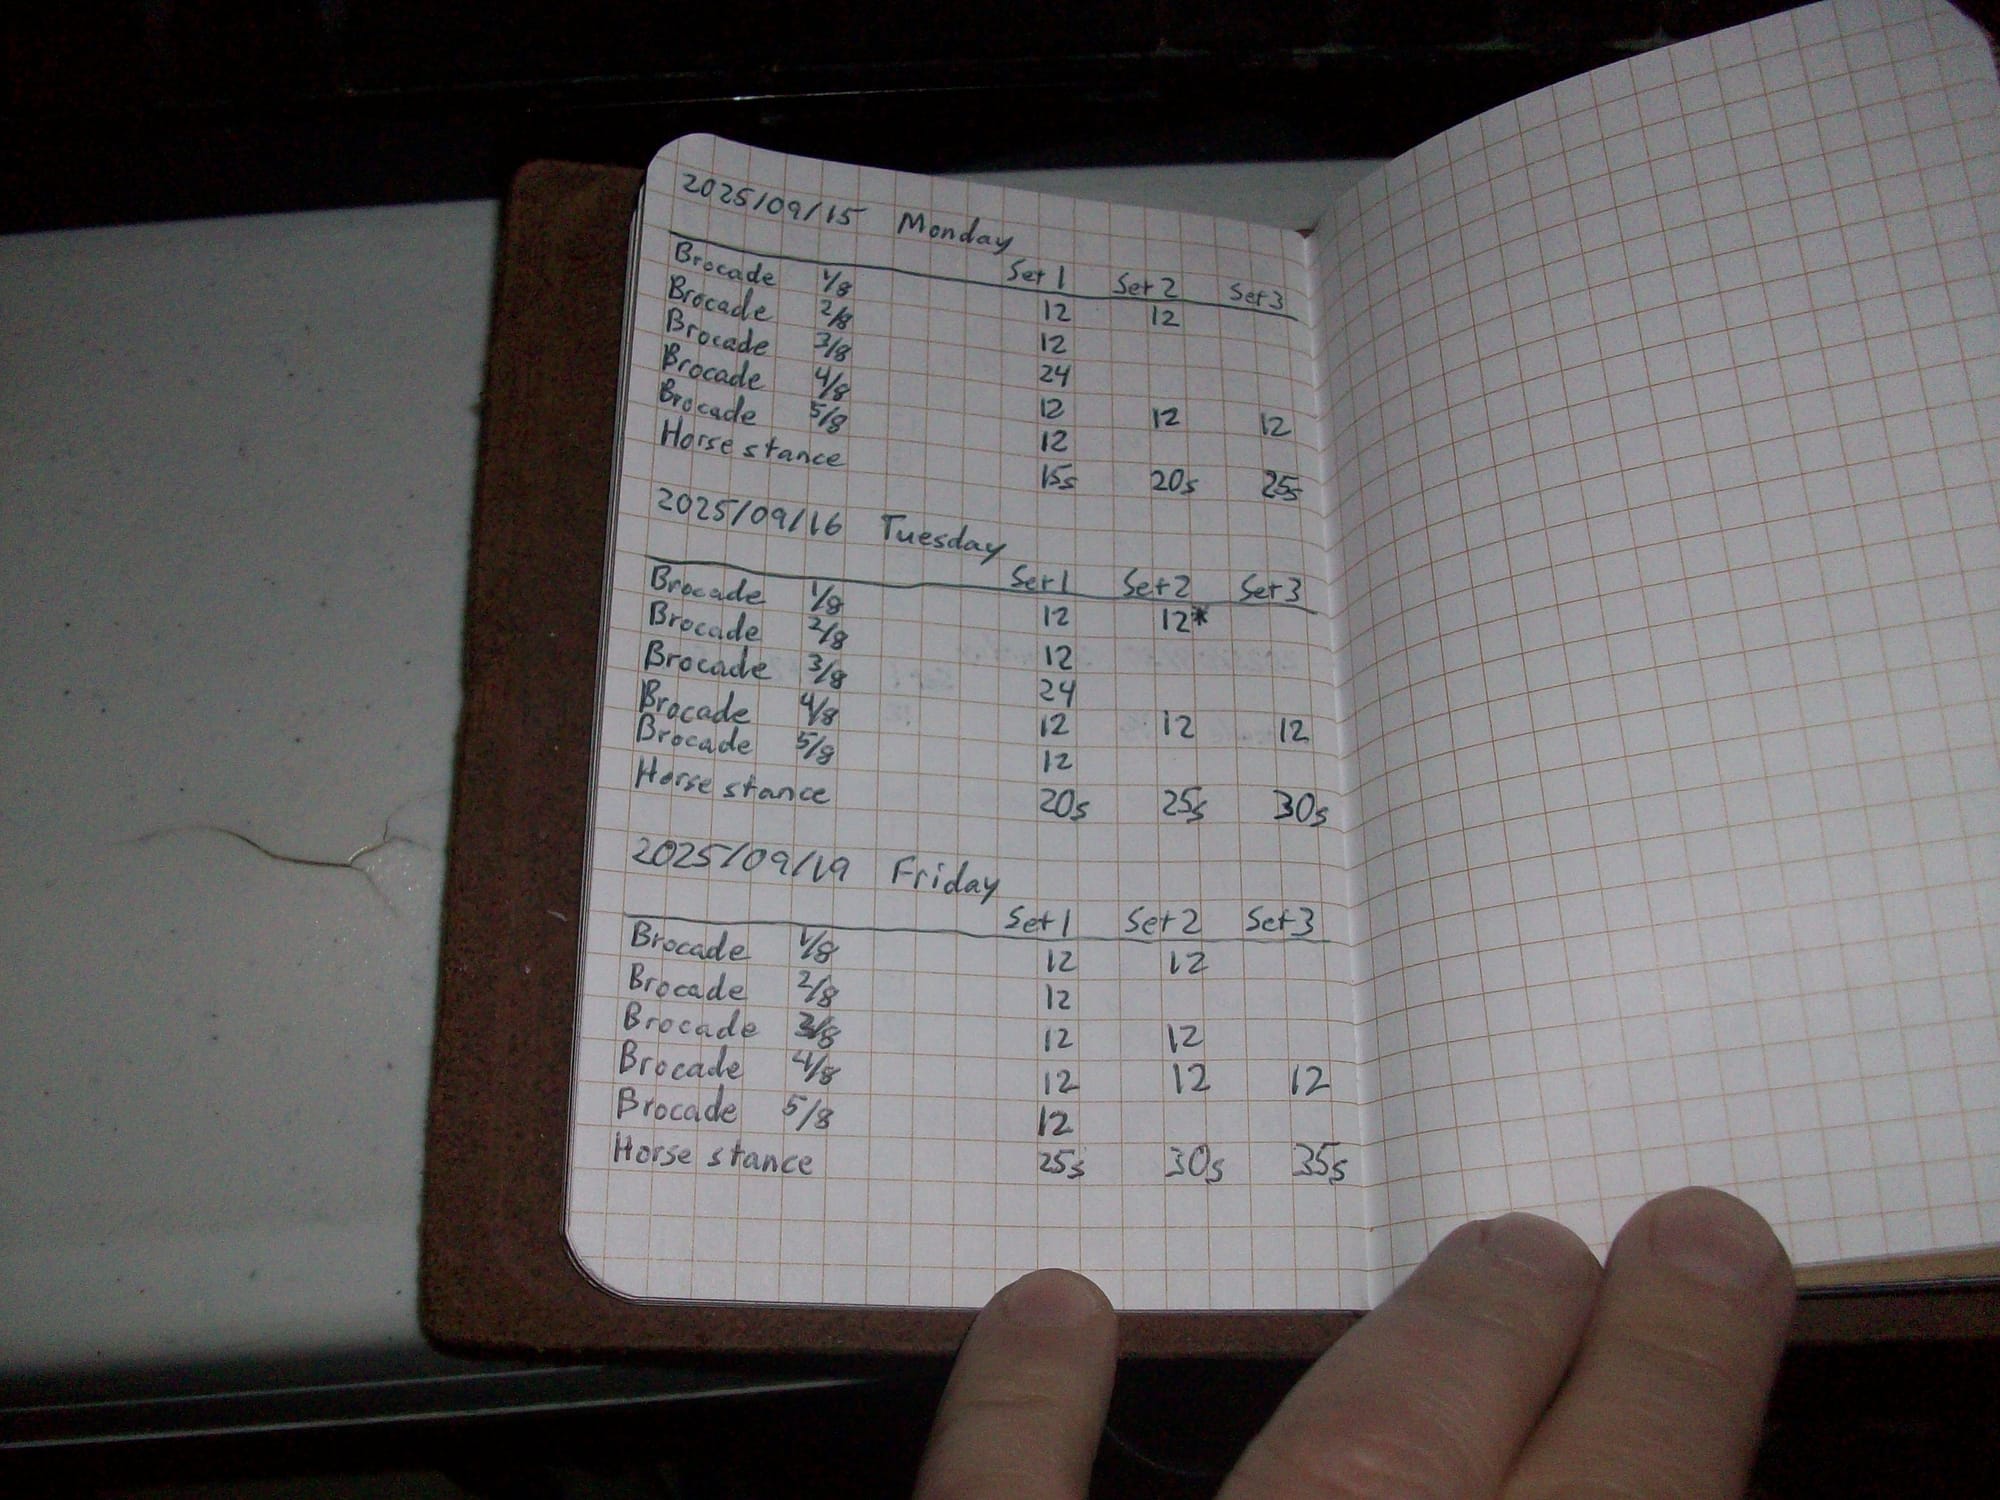 2025/09/15 Monday
Set 1 Set 2 Set 3
Brocade 1/8 12 12
Brocade 2/8 12
Brocade 3/8 24
Brocade 4/8 12 12 12
Brocade 5/8 12
Horse stance 15s 20s 25s
2025/09/16 Tuesday
Set 1 Set 2 Set 3
Brocade 1/8 12 12*
Brocade 2/8 12
Brocade 3/8 24
Brocade 4/8 12 12 12
Brocade 5/8 12
Horse stance 20s 25s 30s
2025/09/19 Friday
Set 1 Set 2 Set 3
Brocade 1/8 12 12
Brocade 2/8 12
Brocade 3/8 12 12
Brocade 4/8 12 12 12
Brocade 5/8 12
Horse stance 25s 30s 35s